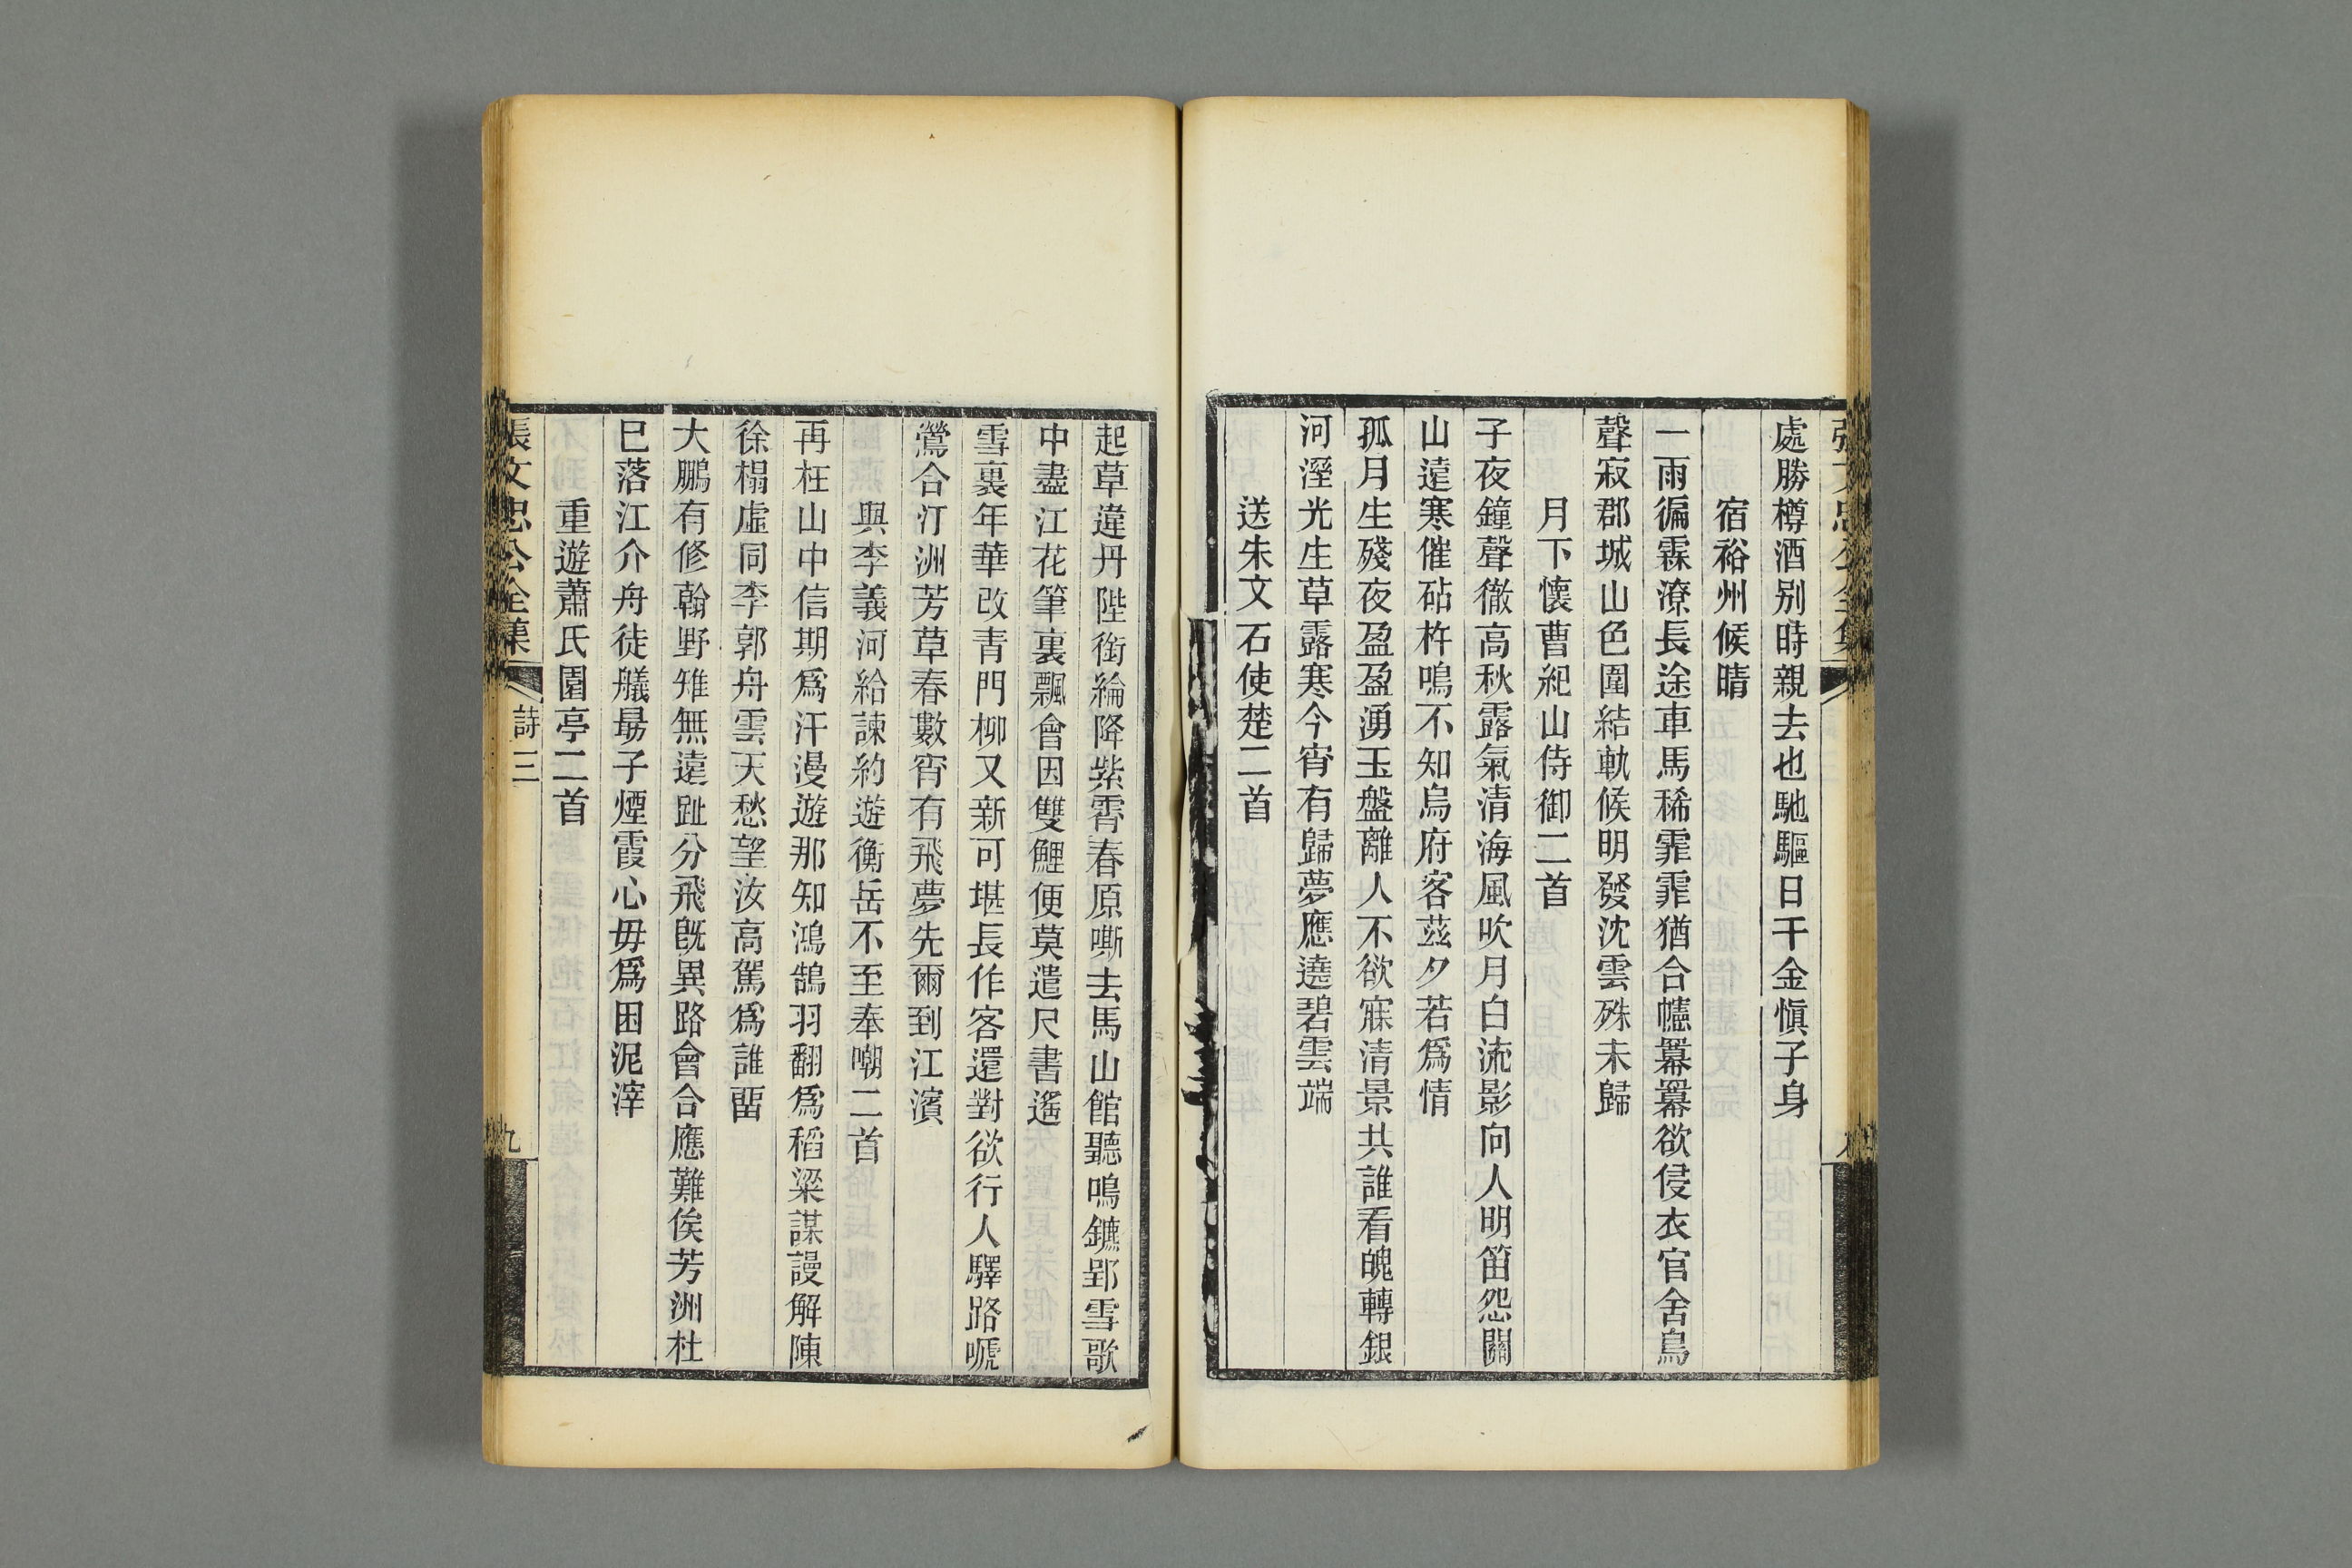 處勝樽酒別時親去也馳驅日千金愼子身
宿裕州候晴
一雨徧霖潦長途車馬稀霏霏猶合幰羃羃欲侵衣官舍鳥
聲寂郡城山色圍結軌候明發沈雲殊未歸
月下懷曹紀山侍御二首
子夜鐘聲徹高秋露氣清海風吹月白流影向人明笛怨關
山遠寒催砧杵鳴不知烏府客茲夕若爲情
孤月生殘夜盈盈湧玉盤離人不欲寐清景共誰看魄轉銀
河溼光生草露寒今宵有歸夢應遶碧雲端
送朱文石使楚二首
起草違丹陛銜綸降紫霄春原嘶去馬山館聽鳴鑣郢雪歌
中盡江花筆裏飄會因雙鯉便莫遣尺書遙
雪裏年華改青門柳又新可堪長作客還對欲行人驛路嗁
鶯合汀洲芳草春數宵有飛夢先爾到江濱
與李義河給諫約遊衡岳不至奉嘲二首
再枉山中信期爲汗漫遊那知鴻鵠羽翻爲稻粱謀謾解陳
徐榻虛同李郭舟雲天愁望汝高駕爲誰畱
大鵬有修翰野雉無遠趾分飛旣異路會合應難俟芳洲杜
巳落江介舟徒艤朂子煙霞心毋爲困泥滓
重遊蕭氏園亭二首
張文忠公全集
詩三
九